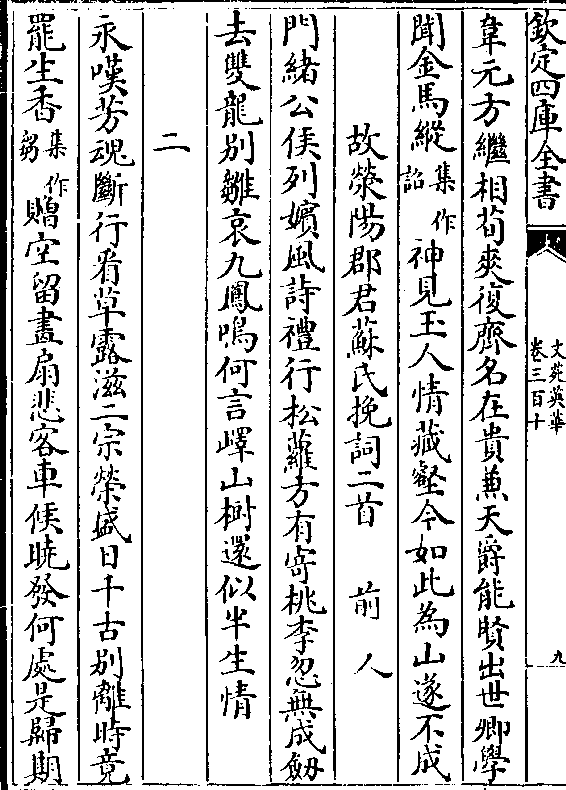 欽定四庫全書
文苑英華
卷三百十
九
韋元方繼相荀爽復齊名在貴兼天爵能賢出世卿學
聞金馬縱集作詔神見玉人情藏壑今如此為山遂不成
故滎陽郡君蘇氏挽詞二首 前人
門緒公侯列嬪風詩禮行松蘿方有寄桃李忽無成劒
去雙龍别雛哀九鳳鳴何言嶧山樹還似半生情
二
永嘆芳魂斷行看草露滋二宗榮盛日千古别離時竟
罷生香集作芻贈空留畫扇悲客車候曉發何處是歸期